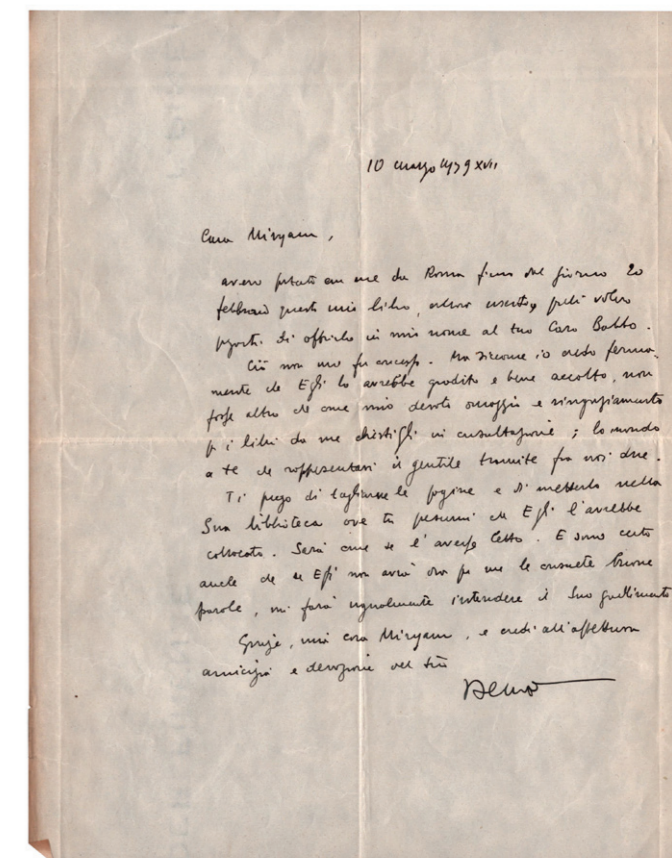 10 marzo 1939 XVII
Cara Miryam,
avevo portato con me da Roma fino dal giorno 20
febbraio questo mio libro, ancora inserto, per
di offrirlo in mio nome al tuo Caro Babbo.
Ciò non mi fu concesso. Ma siccome io credo ferma-
mente che Egli lo avrebbe gradito e bene accolto, non
fosse altro che come mio devoto omaggio e ringraziamento
p i libri da me chiestigli in consultazione; lo mando
a te che rappresentavi il gentile tramite fra noi due.
Ti prego di tagliarne le pagine e di metterlo nella
Sua biblioteca ove tu presumi che Egli l'avrebbe
collocato. Sarà come se l'avesse letto. E sono certo
anche che se Egli non avrà ora per me le consuete buone
parole, mi farà ugualmente intendere il Suo gradimento
Grazie, mia cara Miryam, e credi all'affettuosa
amicizia e devozione del tuo